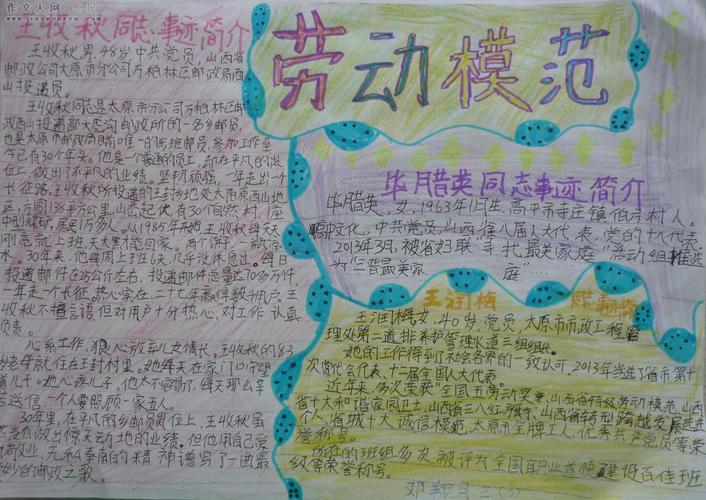 作文人网·板报
劳动模范
王收秋同志事迹简介
王收秋男，48岁，中共党员，山西省
邮政公司太原市分公司万柏林区邮政局西
山投递员。
王收秋同志是太原市分公司万柏林区邮
政西山投递部
的一名乡邮员，
也是太原市邮政局前唯一的班邮员，参加工作至
今已有30个年头。他是个普通的员工，却在平凡的岗
位上，做出了不平凡的业绩。坚韧顽强，一年走出一个
长征路，王收秋所投递的王封乡地处太原西山地
区，方圆136平方公里，山峦起伏，有30个自然村，
中型煤矿，居民1万多人。从1985年开始，王收秋每天
刚亮就上班，天大黑才能回家。两个饼，一瓶凉
水，30年来，他每周上班6天，几乎没休过。每日
投递邮件在25公斤左右，投递邮件总量达70多万件，
一年走一个长征。热心实在，二十七年赢得数千用户，王
收秋不擅言语但对用户十分热心，对工作认真
负责。
心系工作，狠心放弃儿女情长。王收秋的83
岁老母就住在王封村里。她每天在家门口守望
着儿子。她心疼儿子，他太不容易了，每天那么辛
苦送信，一个人要照顾一家五人。
30年里，在平凡的乡邮员岗位上，王收秋虽
然没有做出惊天动地的业绩，但他用自己爱
岗敬业，无私奉献的精神谱写了一曲最
妙的邮政之歌。
毕腊英同志事迹简介
毕腊英，女，1963年1月生，高平市寺庄镇伯方村人。
高中文化，中共党员，山西省八届人大代表，党的十八代表。
2013年3月，被省妇联“寻找最美家庭”活动组推选
为“三晋最美家庭……
王润梅同志事迹简介
王润梅，女，40岁，党员，太原市市政工程管
理处第二道排养护管理水道三组组长。
她的工作得到了社会各界的一致认可，2013年当选了省市第十
次党代会代表、十二届全国人大代表。
近年来，多次荣获“全国五一劳动奖章、山西省特级劳动模范、山西
省十大和谐家园卫士、山西省三八红旗手、山西省转型跨越发展先进
个人、省城十大诚信模范、太原市金牌工人、优秀共产党员等荣
誉称号。
所在的班组多次被评为全国职业道德建设百佳班
级等荣誉称号。
邓翔